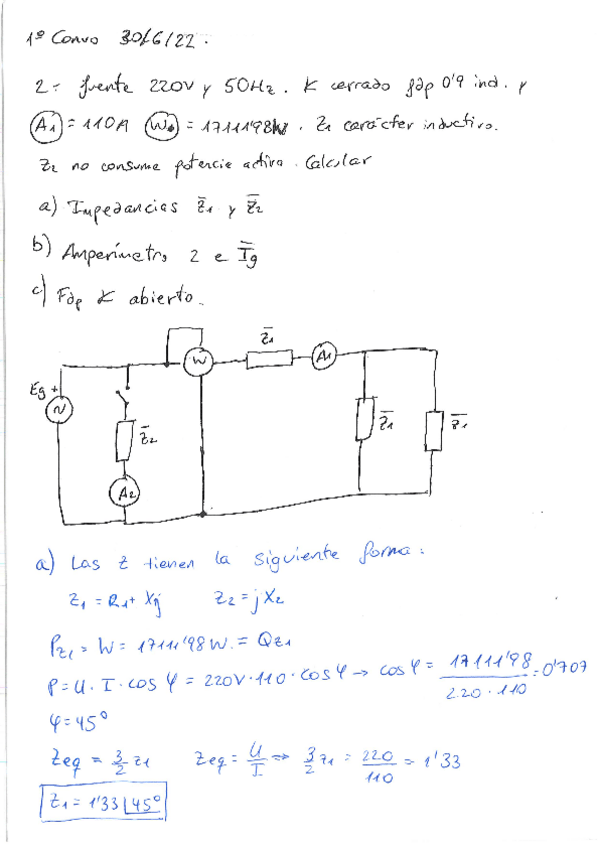 1º Convo 30/6/22.
2- fuente 220V y 50Hz. K cerrado fdp 0'9 ind. y
(A1) = 110A (W) = 17111'98W. Z1 carácter inductivo.
Z2 no consume potencia activa. Calcular
a) Impedancias Z̄1 y Z̄2
b) Amperímetro 2 e Īg
c) Fdp K abierto.
Z̄1
W
A1
Eg +
N
Z̄2
Z̄1
Z̄1
A2
a) Las Z tienen la siguiente forma:
Z1 = R1+ Xj Z2 = jX2
PZ1 = W = 17111'98 W. = QZ1
P = U · I · cos φ = 220V·110·cos φ → cos φ = 17111'98 / 220·110 = 0'707
φ = 45º
Zeq = 3/2 Z1 Zeq = U/I ⇒ 3/2 Z1 = 220/110 = 1'33
Z1 = 1'33 |45º